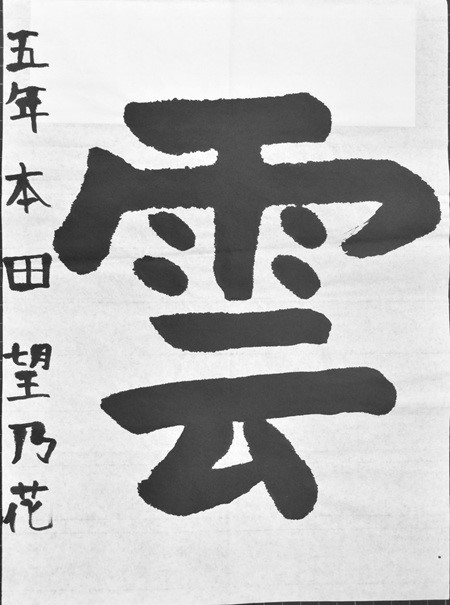 雲
五年 本田 望乃花